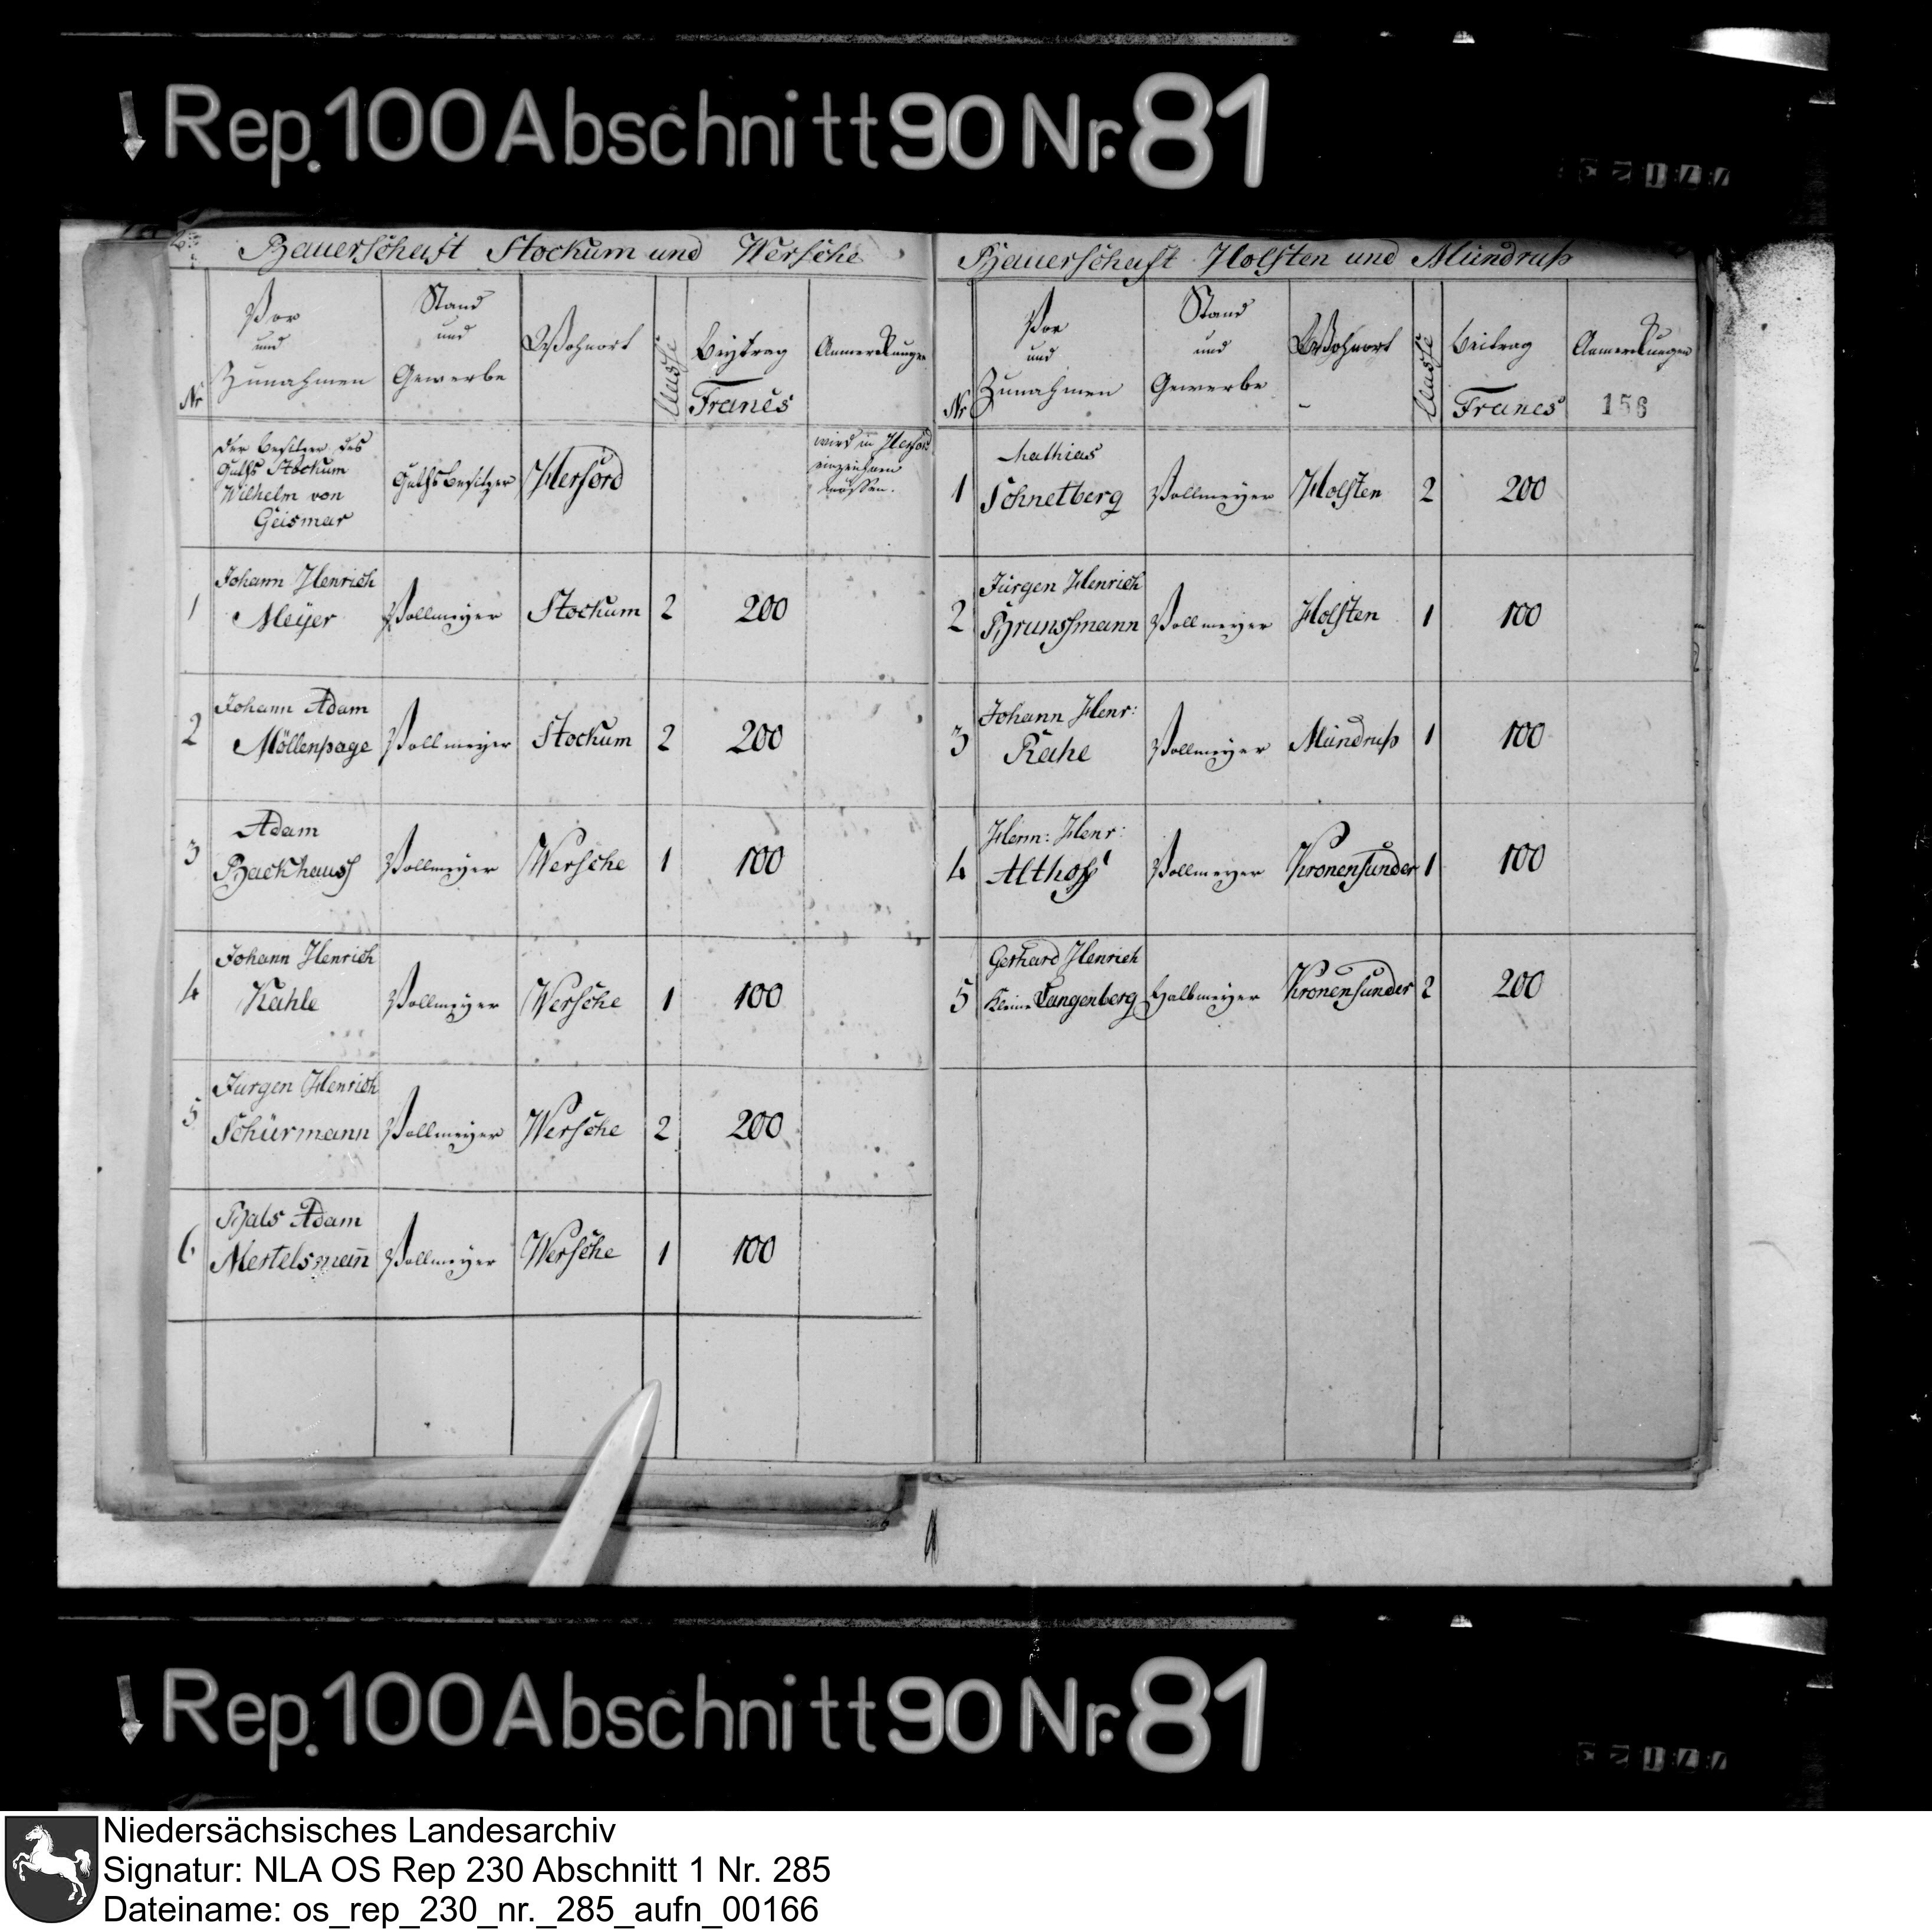 Rep. 100 Abschnitt 90 Nr. 81
Bauerschaft Stockum und Wersche
Nr
Vor
und
Zunahmen
Stand
und
Gewerbe
Wohnort
Classe
Beytrag
Francs
Anmerckungen
Der Besitzer des
Guths Stockum
Wilhelm von
Geismar
Guthsbesitzer
Herford
wird in Herford
einzeichnen
müssen.
1 Johann Henrich
Meÿer Vollmeyer Stockum 2 200
2 Johann Adam
Möllenpage Vollmeyer Stockum 2 200
3 Adam
Backhauss Vollmeyer Wersche 1 100
4 Johann Henrich
Kahle Vollmeyer Wersche 1 100
5 Jürgen Henrich
Schürmann Vollmeyer Wersche 2 200
6 Bals Adam
Mertelsmañ Vollmeyer Wersche 1 100
Bauerschaft Holsten und Mündrup
Nr
Vor
und
Zunahmen
Stand
und
Gewerbe
Wohnort
Classe
Beitrag
Francs
Anmerckungen
156
1 Mathias
Schnetberg Vollmeyer Holsten 2 200
2 Jürgen Henrich
Brunssmann Vollmeyer Holsten 1 100
3 Johann Henr:
Rahe Vollmeyer Mündrup 1 100
4 Herm: Henr:
Althoff Vollmeyer Kronensunder 1 100
5 Gerhard Henrich
Kleine Langenberg Halbmeyer Kronensunder 2 200
Rep. 100 Abschnitt 90 Nr. 81
Niedersächsisches Landesarchiv
Signatur: NLA OS Rep 230 Abschnitt 1 Nr. 285
Dateiname: os_rep_230_nr._285_aufn_00166